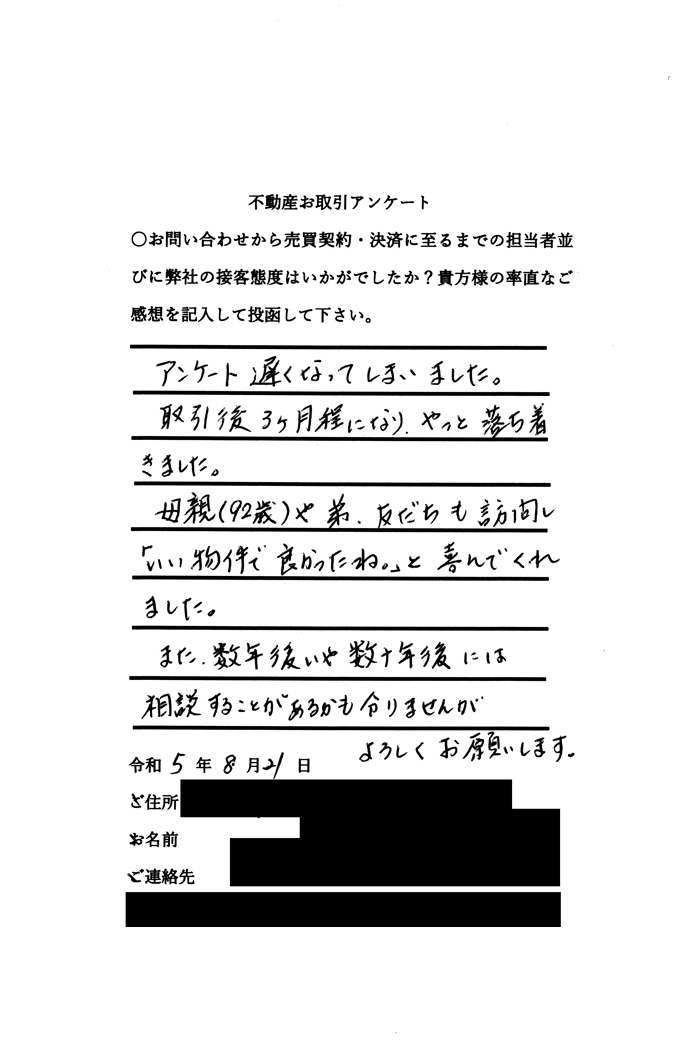 不動産お取引アンケート
〇お問い合わせから売買契約・決済に至るまでの担当者並
びに弊社の接客態度はいかがでしたか？貴方様の率直なご
感想を記入して投函して下さい。
アンケート遅くなってしまいました。
取引後3ヶ月程になり、やっと落ち着
きました。
母親(92歳)や弟、友だちも訪問し
「いい物件で良かったね。」と喜んでくれ
ました。
また、数年後いや数十年後には
相談することがあるかも分りませんが
よろしくお願いします。
令和5年8月21日
ご住所
お名前
ご連絡先